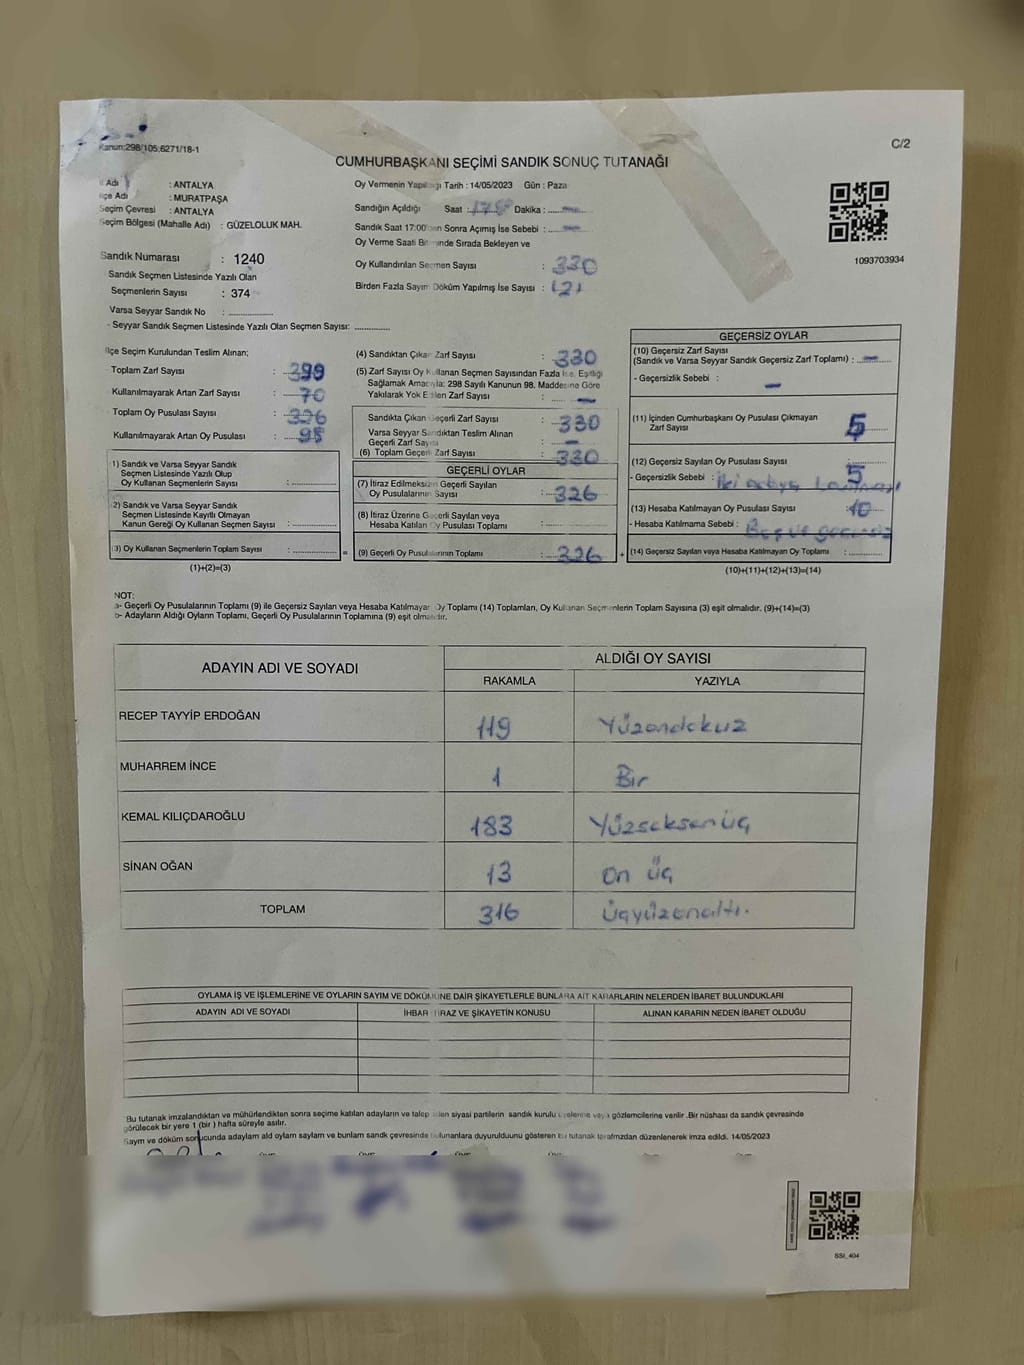 Kanun:298/105;6271/18-1
C/2
CUMHURBAŞKANI SEÇİMİ SANDIK SONUÇ TUTANAĞI
İl Adı : ANTALYA
İlçe Adı : MURATPAŞA
Seçim Çevresi : ANTALYA
Seçim Bölgesi (Mahalle Adı) : GÜZELOLUK MAH.
Sandık Numarası : 1240
Sandık Seçmen Listesinde Yazılı Olan
Seçmenlerin Sayısı : 374
Varsa Seyyar Sandık No : ..............
- Seyyar Sandık Seçmen Listesinde Yazılı Olan Seçmen Sayısı: ............
Oy Vermenin Yapıldığı Tarih : 14/05/2023 Gün : Paza
Sandığın Açıldığı Saat : Dakika :
Sandık Saat 17:00'den Sonra Açılmış İse Sebebi :
Oy Verme Saati Bitiminde Sırada Bekleyen ve
Oy Kullandırılan Seçmen Sayısı : 330
Birden Fazla Sayım Döküm Yapılmış İse Sayısı : (2)
1093703934
İlçe Seçim Kurulundan Teslim Alınan;
Toplam Zarf Sayısı : 399
Kullanılmayarak Artan Zarf Sayısı : 70
Toplam Oy Pusulası Sayısı :
Kullanılmayarak Artan Oy Pusulası : 95
1) Sandık ve Varsa Seyyar Sandık
Seçmen Listesinde Yazılı Olup
Oy Kullanan Seçmenlerin Sayısı : ..............
2) Sandık ve Varsa Seyyar Sandık
Seçmen Listesinde Kayıtlı Olmayan
Kanun Gereği Oy Kullanan Seçmen Sayısı : ..............
3) Oy Kullanan Seçmenlerin Toplam Sayısı : .............. =
(1)+(2)=(3)
(4) Sandıktan Çıkan Zarf Sayısı : 330
(5) Zarf Sayısı Oy Kullanan Seçmen Sayısından Fazla İse, Eşitliği
Sağlamak Amacıyla; 298 Sayılı Kanunun 98. Maddesine Göre
Yakılarak Yok Edilen Zarf Sayısı : -
Sandıkta Çıkan Geçerli Zarf Sayısı : 330
Varsa Seyyar Sandıktan Teslim Alınan
Geçerli Zarf Sayısı : -
(6) Toplam Geçerli Zarf Sayısı : 330
GEÇERLİ OYLAR
(7) İtiraz Edilmeksizin Geçerli Sayılan
Oy Pusulalarının Sayısı : 326
(8) İtiraz Üzerine Geçerli Sayılan veya
Hesaba Katılan Oy Pusulası Toplamı : ..............
(9) Geçerli Oy Pusulalarının Toplamı : 326 +
GEÇERSİZ OYLAR
(10) Geçersiz Zarf Sayısı
(Sandık ve Varsa Seyyar Sandık Geçersiz Zarf Toplamı) : -
- Geçersizlik Sebebi : -
(11) İçinden Cumhurbaşkanı Oy Pusulası Çıkmayan
Zarf Sayısı : 5
(12) Geçersiz Sayılan Oy Pusulası Sayısı : 5
- Geçersizlik Sebebi : İki adaya
(13) Hesaba Katılmayan Oy Pusulası Sayısı : 10
- Hesaba Katılmama Sebebi : Boş ve geçersiz
(14) Geçersiz Sayılan veya Hesaba Katılmayan Oy Toplamı : ............
(10)+(11)+(12)+(13)=(14)
NOT:
a- Geçerli Oy Pusulalarının Toplamı (9) ile Geçersiz Sayılan veya Hesaba Katılmayan Oy Toplamı (14) Toplamları, Oy Kullanan Seçmenlerin Toplam Sayısına (3) eşit olmalıdır. (9)+(14)=(3)
b- Adayların Aldığı Oyların Toplamı, Geçerli Oy Pusulalarının Toplamına (9) eşit olmalıdır.
ADAYIN ADI VE SOYADI
ALDIĞI OY SAYISI
RAKAMLA YAZIYLA
RECEP TAYYİP ERDOĞAN 119 Yüzondokuz
MUHARREM İNCE 1 Bir
KEMAL KILIÇDAROĞLU 183 Yüzseksenüç
SİNAN OĞAN 13 On üç
TOPLAM 316 Üçyüzonaltı.
OYLAMA İŞ VE İŞLEMLERİNE VE OYLARIN SAYIM VE DÖKÜMÜNE DAİR ŞİKAYETLERLE BUNLARA AİT KARARLARIN NELERDEN İBARET BULUNDUKLARI
ADAYIN ADI VE SOYADI İHBAR İTİRAZ VE ŞİKAYETİN KONUSU ALINAN KARARIN NEDEN İBARET OLDUĞU
Bu tutanak imzalandıktan ve mühürlendikten sonra seçime katılan adayların ve talep eden siyasi partilerin sandık kurulu üyelerine veya gözlemcilerine verilir .Bir nüshası da sandık çevresinde
görülecek bir yere 1 (bir ) hafta süreyle asılır.
Sayım ve döküm sonucunda adayların ald oyların sayların ve bunların sandk çevresinde bulunanlara duyurulduunu gösteren bu tutanak tarafmzdan düzenlenerek imza edildi. 14/05/2023
SSI_404